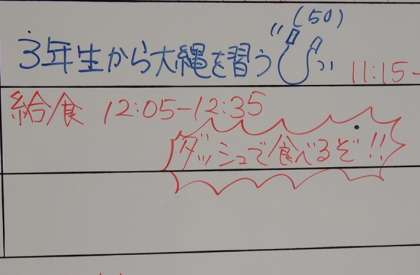 (50)
3年生から大縄を習う
11:15-
給食 12:05-12:35
ダッシュで食べるぞ!!